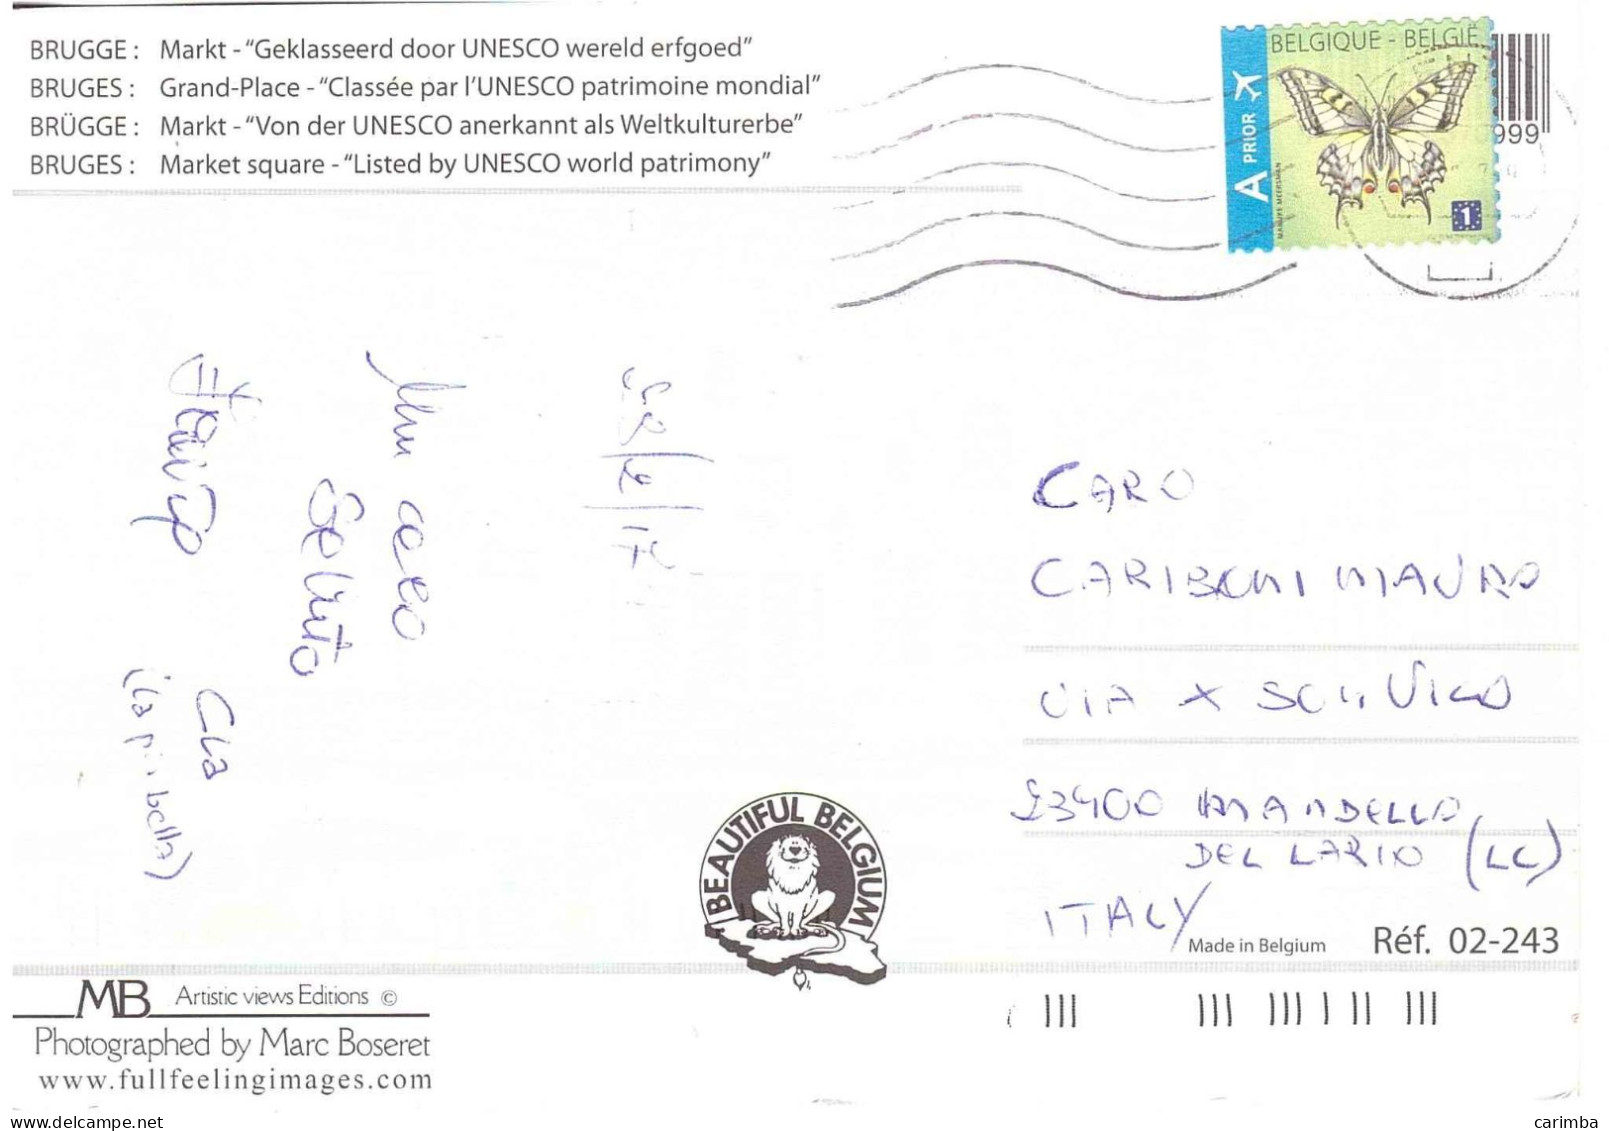 BRUGGE : Markt - “Geklasseerd door UNESCO wereld erfgoed”
BRUGES : Grand-Place - “Classée par l’UNESCO patrimoine mondial”
BRÜGGE : Markt - “Von der UNESCO anerkannt als Weltkulturerbe”
BRUGES : Market square - “Listed by UNESCO world patrimony”
BELGIQUE - BELGIË
A PRIOR
MARIJKE MEERSMAN
1
999
Un caro
Saluto
Cla
(la più bella)
CARO
CARIBONI MAURO
VIA X
23900 MANDELLO
DEL LARIO (LC)
ITALY
BEAUTIFUL BELGIUM
Made in Belgium Réf. 02-243
MB Artistic views Editions ©
Photographed by Marc Boseret
www.fullfeelingimages.com
carimba